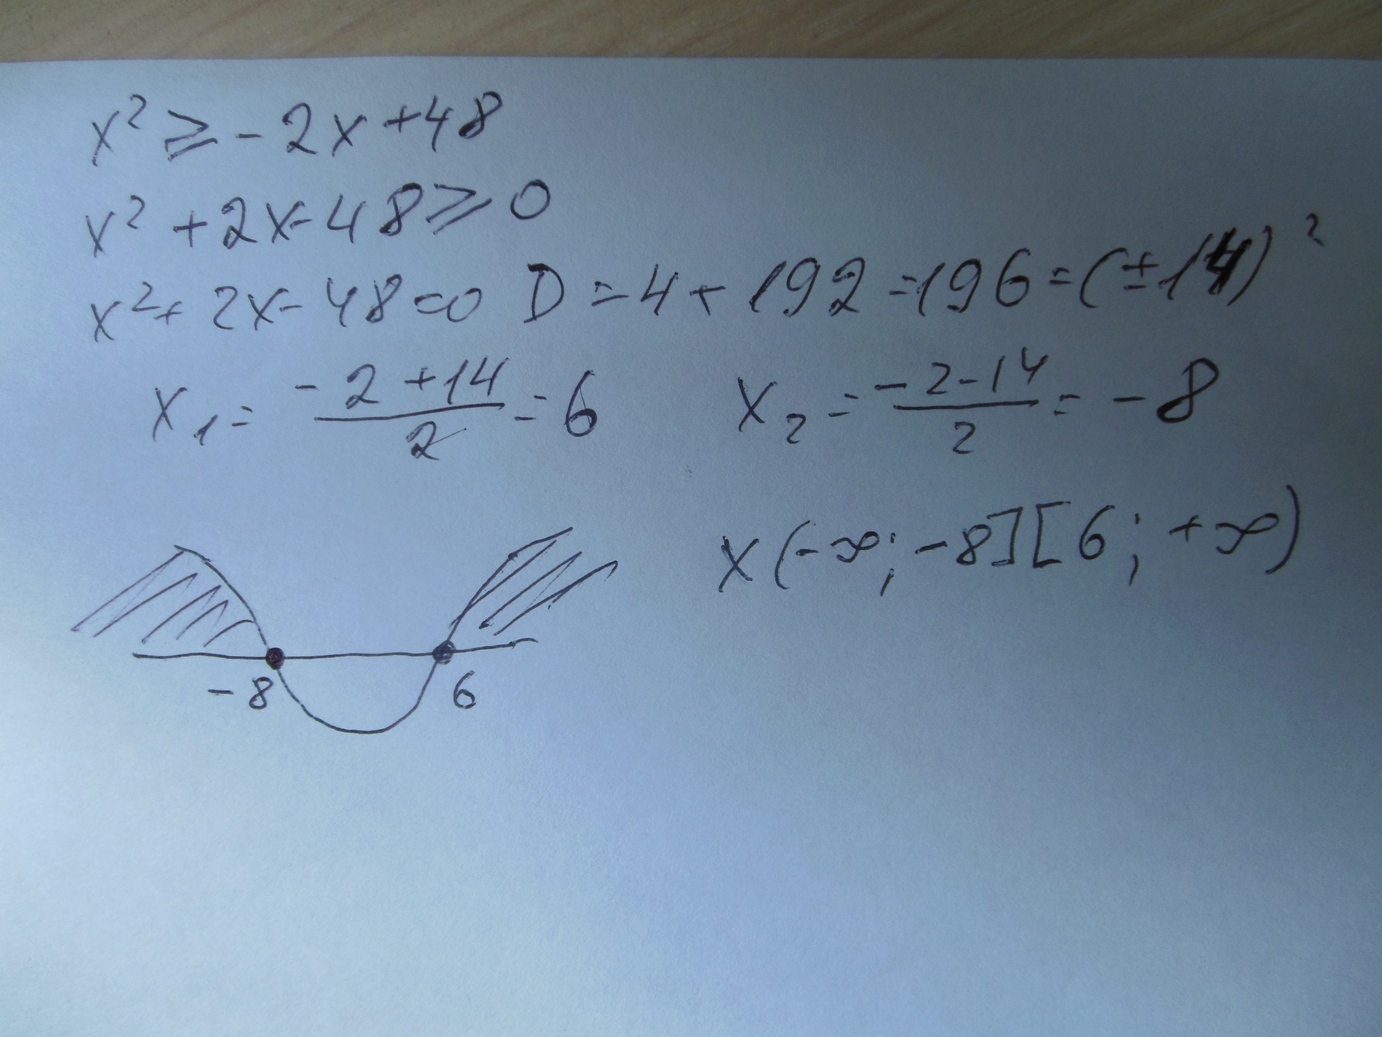 x² ⩾ - 2x + 48
x² + 2x - 48 ⩾ 0
x² + 2x - 48 = 0 D = 4 + 192 = 196 = (±14)²
x₁ = (-2 + 14)/2 = 6 x₂ = (-2 - 14)/2 = -8
x (-∞; -8] [6; +∞)
-8 6